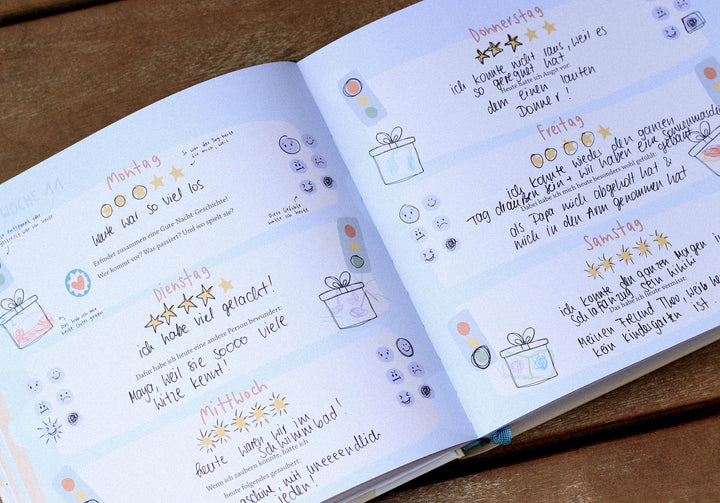 WOCHE 11
Montag
So war der Tag heute
für mich, weil
heute war so viel los
Erfindet zusammen eine Gute-Nacht-Geschichte!
Wer kommt vor? Was passiert? Und wo spielt sie?
Diese Gefühle
hatte ich heute
Das hab ich mir
heute Gutes getan
Dienstag
ich habe viel gelacht!
Dafür habe ich heute eine andere Person bewundert:
Maya, weil sie soooo viele
witze kennt!
Mittwoch
heute waren wir im
Schwimmbad!
Wenn ich zaubern könnte, hätte ich
heute folgendes gezaubert:
mit uneeeendlich
jeden!
Donnerstag
ich konnte nicht raus, weil es
so geregnet hat
Heute hatte ich Angst vor:
dem einen lauten
Donner!
Freitag
ich konnte wieder den ganzen
Tag draußen sein + wir haben eine
gebaut
Dabei habe ich mich heute besonders wohl gefühlt:
als Papa mich abgeholt hat &
mich in den Arm genommen hat
Samstag
ich konnte den ganzen Morgen im
Schlafanzug sein hihihi
Das habe ich heute vermisst:
Meinen Freund Theo, weil
kein Kindergarten ist